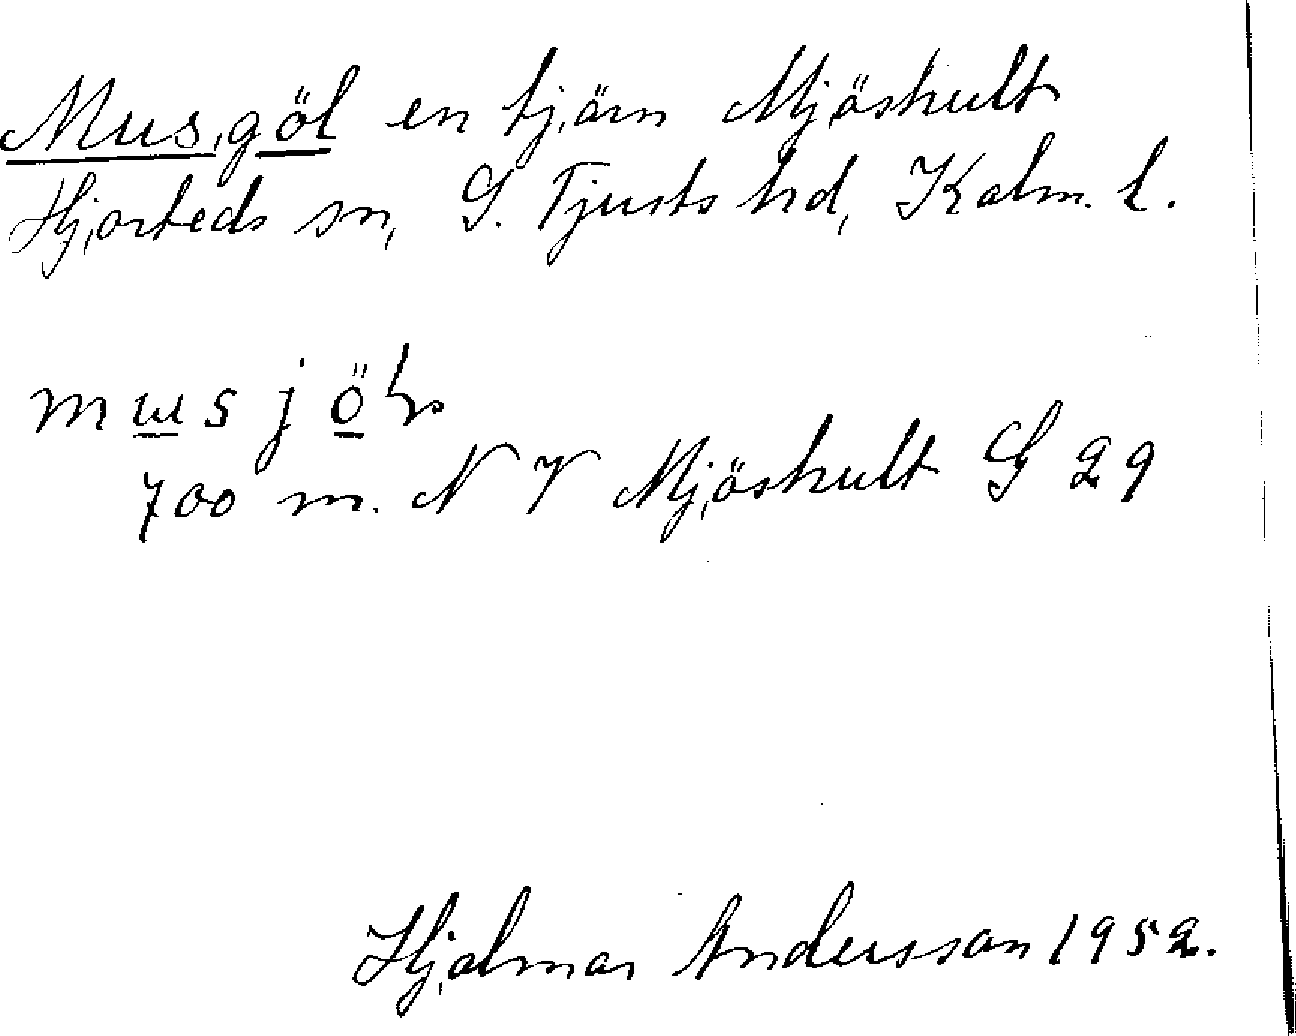 Musgöl en tjärn Mjöshult
Hjorteds sn, S. Tjusts hd, Kalm. l.
musjöl
700 m. NV Mjöshult G 29
Hjalmar Andersson 1952.